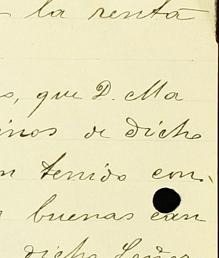 la renta
s, que D. Ma
inos de dicho
n tenido con
buenas
dicho Señor